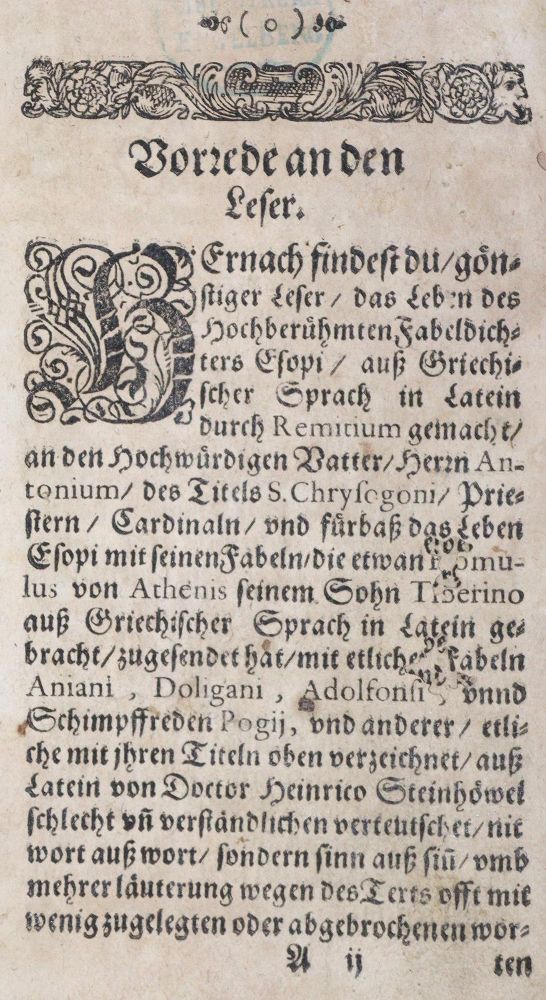 ( o )
Vorrede an den
Leser.
HErnach findest du/ gön⸗
stiger Leser/ das Leben des
Hochberühmten Fabeldich⸗
ters Esopi/ auß Griechi⸗
scher Sprach in Latein
durch Remitium gemacht/
an den Hochwürdigen Vatter/ Herrn An-
tonium/ des Titels S. Chrysogoni/ Prie⸗
stern/ Cardinaln/ vnd fürbaß das Leben
Esopi mit seinen Fabeln/ die etwan Romu-
lus von Athenis seinem Sohn Tiberino
auß Griechischer Sprach in Latein ge⸗
bracht/ zugesendet hat/ mit etlichen Fabeln
Aniani, Doligani, Adolfonsi, vnnd
Schimpffreden Pogij, vnd anderer/ etli⸗
che mit jhren Titeln oben verzeichnet/ auß
Latein von Doctor Heinrico Steinhöwel
schlecht vñ verständlichen verteutschet/ nit
wort auß wort/ sondern sinn auß siñ/ vmb
mehrer läuterung wegen des Terts offt mit
wenig zugelegten oder abgebrochenen wor⸗
A ij ten